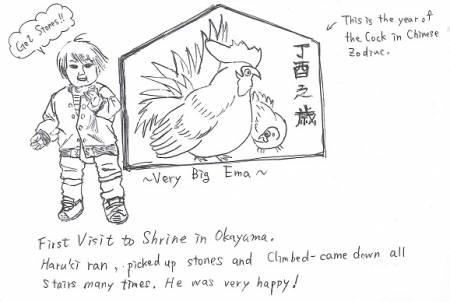 Get Stones!!
This is the year of
the Cock in Chinese
Zodiac.
丁酉之歳
~Very Big Ema~
First Visit to Shrine in Okayama.
Haruki ran, picked up stones and Climbed-came down all
Stairs many times. He was very happy!